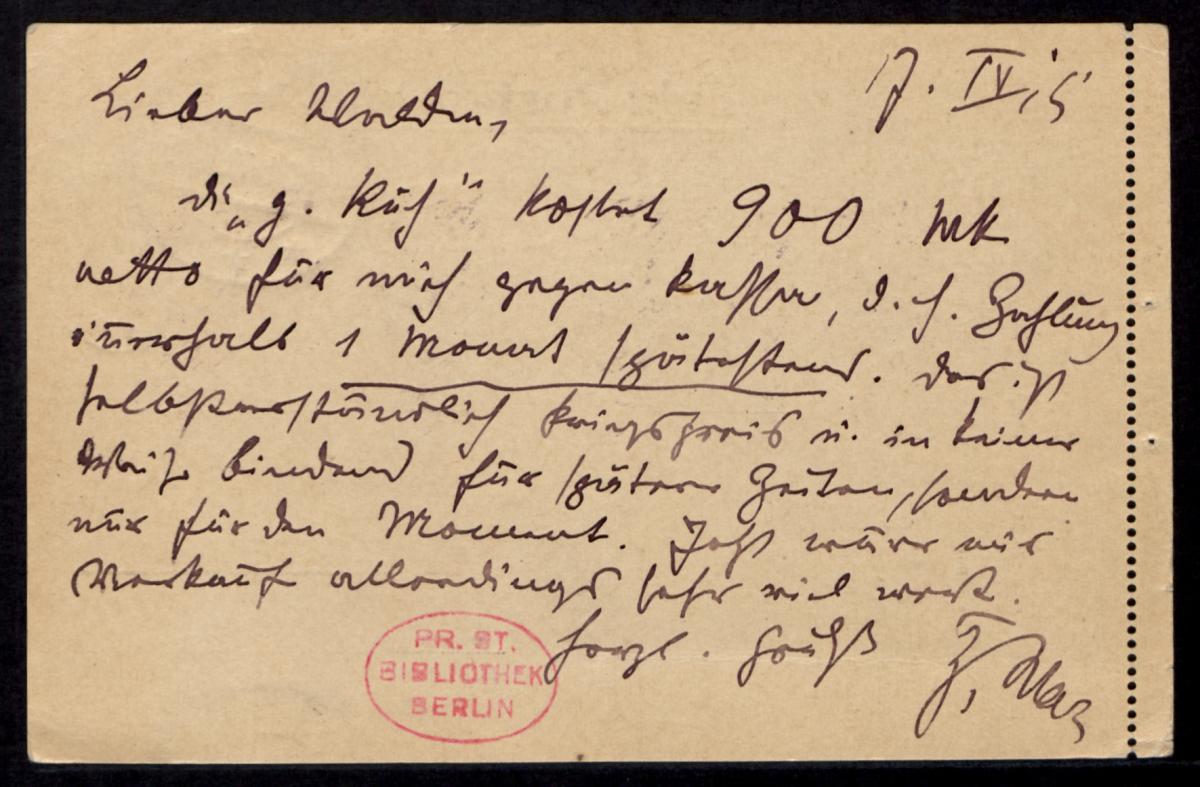 17. IV. 15
Lieber Walden,
die „g. Kuh“ kostet 900 Mk
netto für mich gegen Kassa, d. h. Zahlung
innerhalb 1 Monat spätestens. Das ist
selbstverständlich Kriegspreis u. in keiner
Weise bindend für spätere Zeiten, sondern
nur für den Moment. Jetzt wäre mir
Verkauf allerdings sehr viel wert.
herzl. Gruß
Fz. Marc
PR. ST.
BIBLIOTHEK
BERLIN